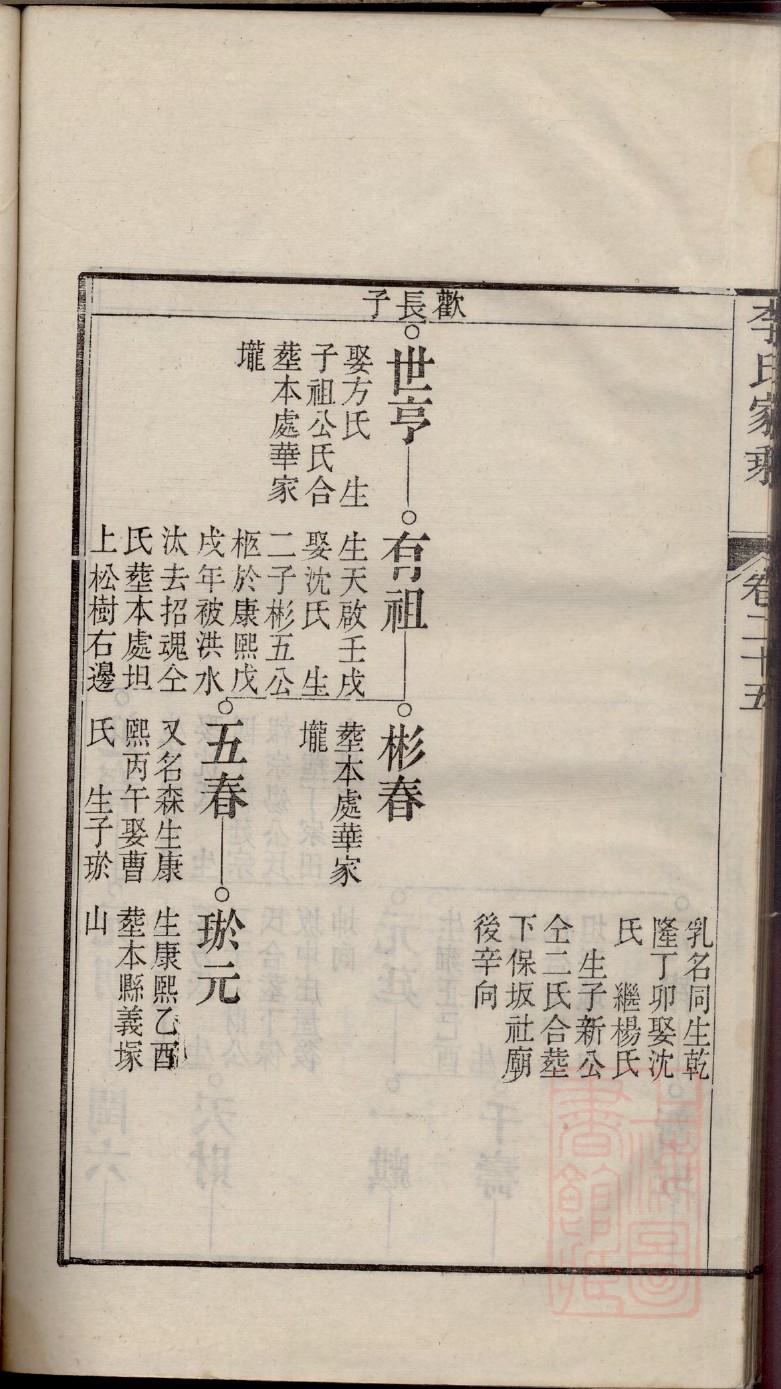 李氏家乘
卷二十五
乳名同生乾
隆丁卯娶沈
氏　繼楊氏
生子新公
仝二氏合塟
下保坂社廟
後辛向
歡長子
世亨
娶方氏　生
子祖公氏合
塟本處華家
壠
有祖
生天啟壬戌
娶沈氏　生
二子彬五公
柩於康熙戊
戌年被洪水
汰去招魂仝
氏塟本處坦
上松樹右邊
彬春
塟本處華家
壠
五春
又名森生康
熙丙午娶曹
氏　生子琜
琜元
生康熙乙酉
塟本縣義塚
山